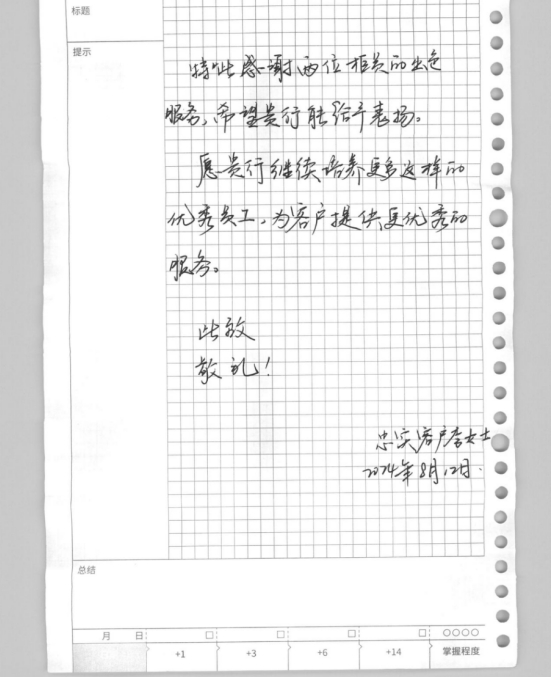 标题
提示
特此感谢两位柜员的出色
服务,希望贵行能给予表扬。
愿贵行继续培养更多这样的
优秀员工,为客户提供更优秀的
服务。
此致
敬礼!
忠实客户李女士
2024年8月12日.
总结
月 日
+1 +3 +6 +14 掌握程度